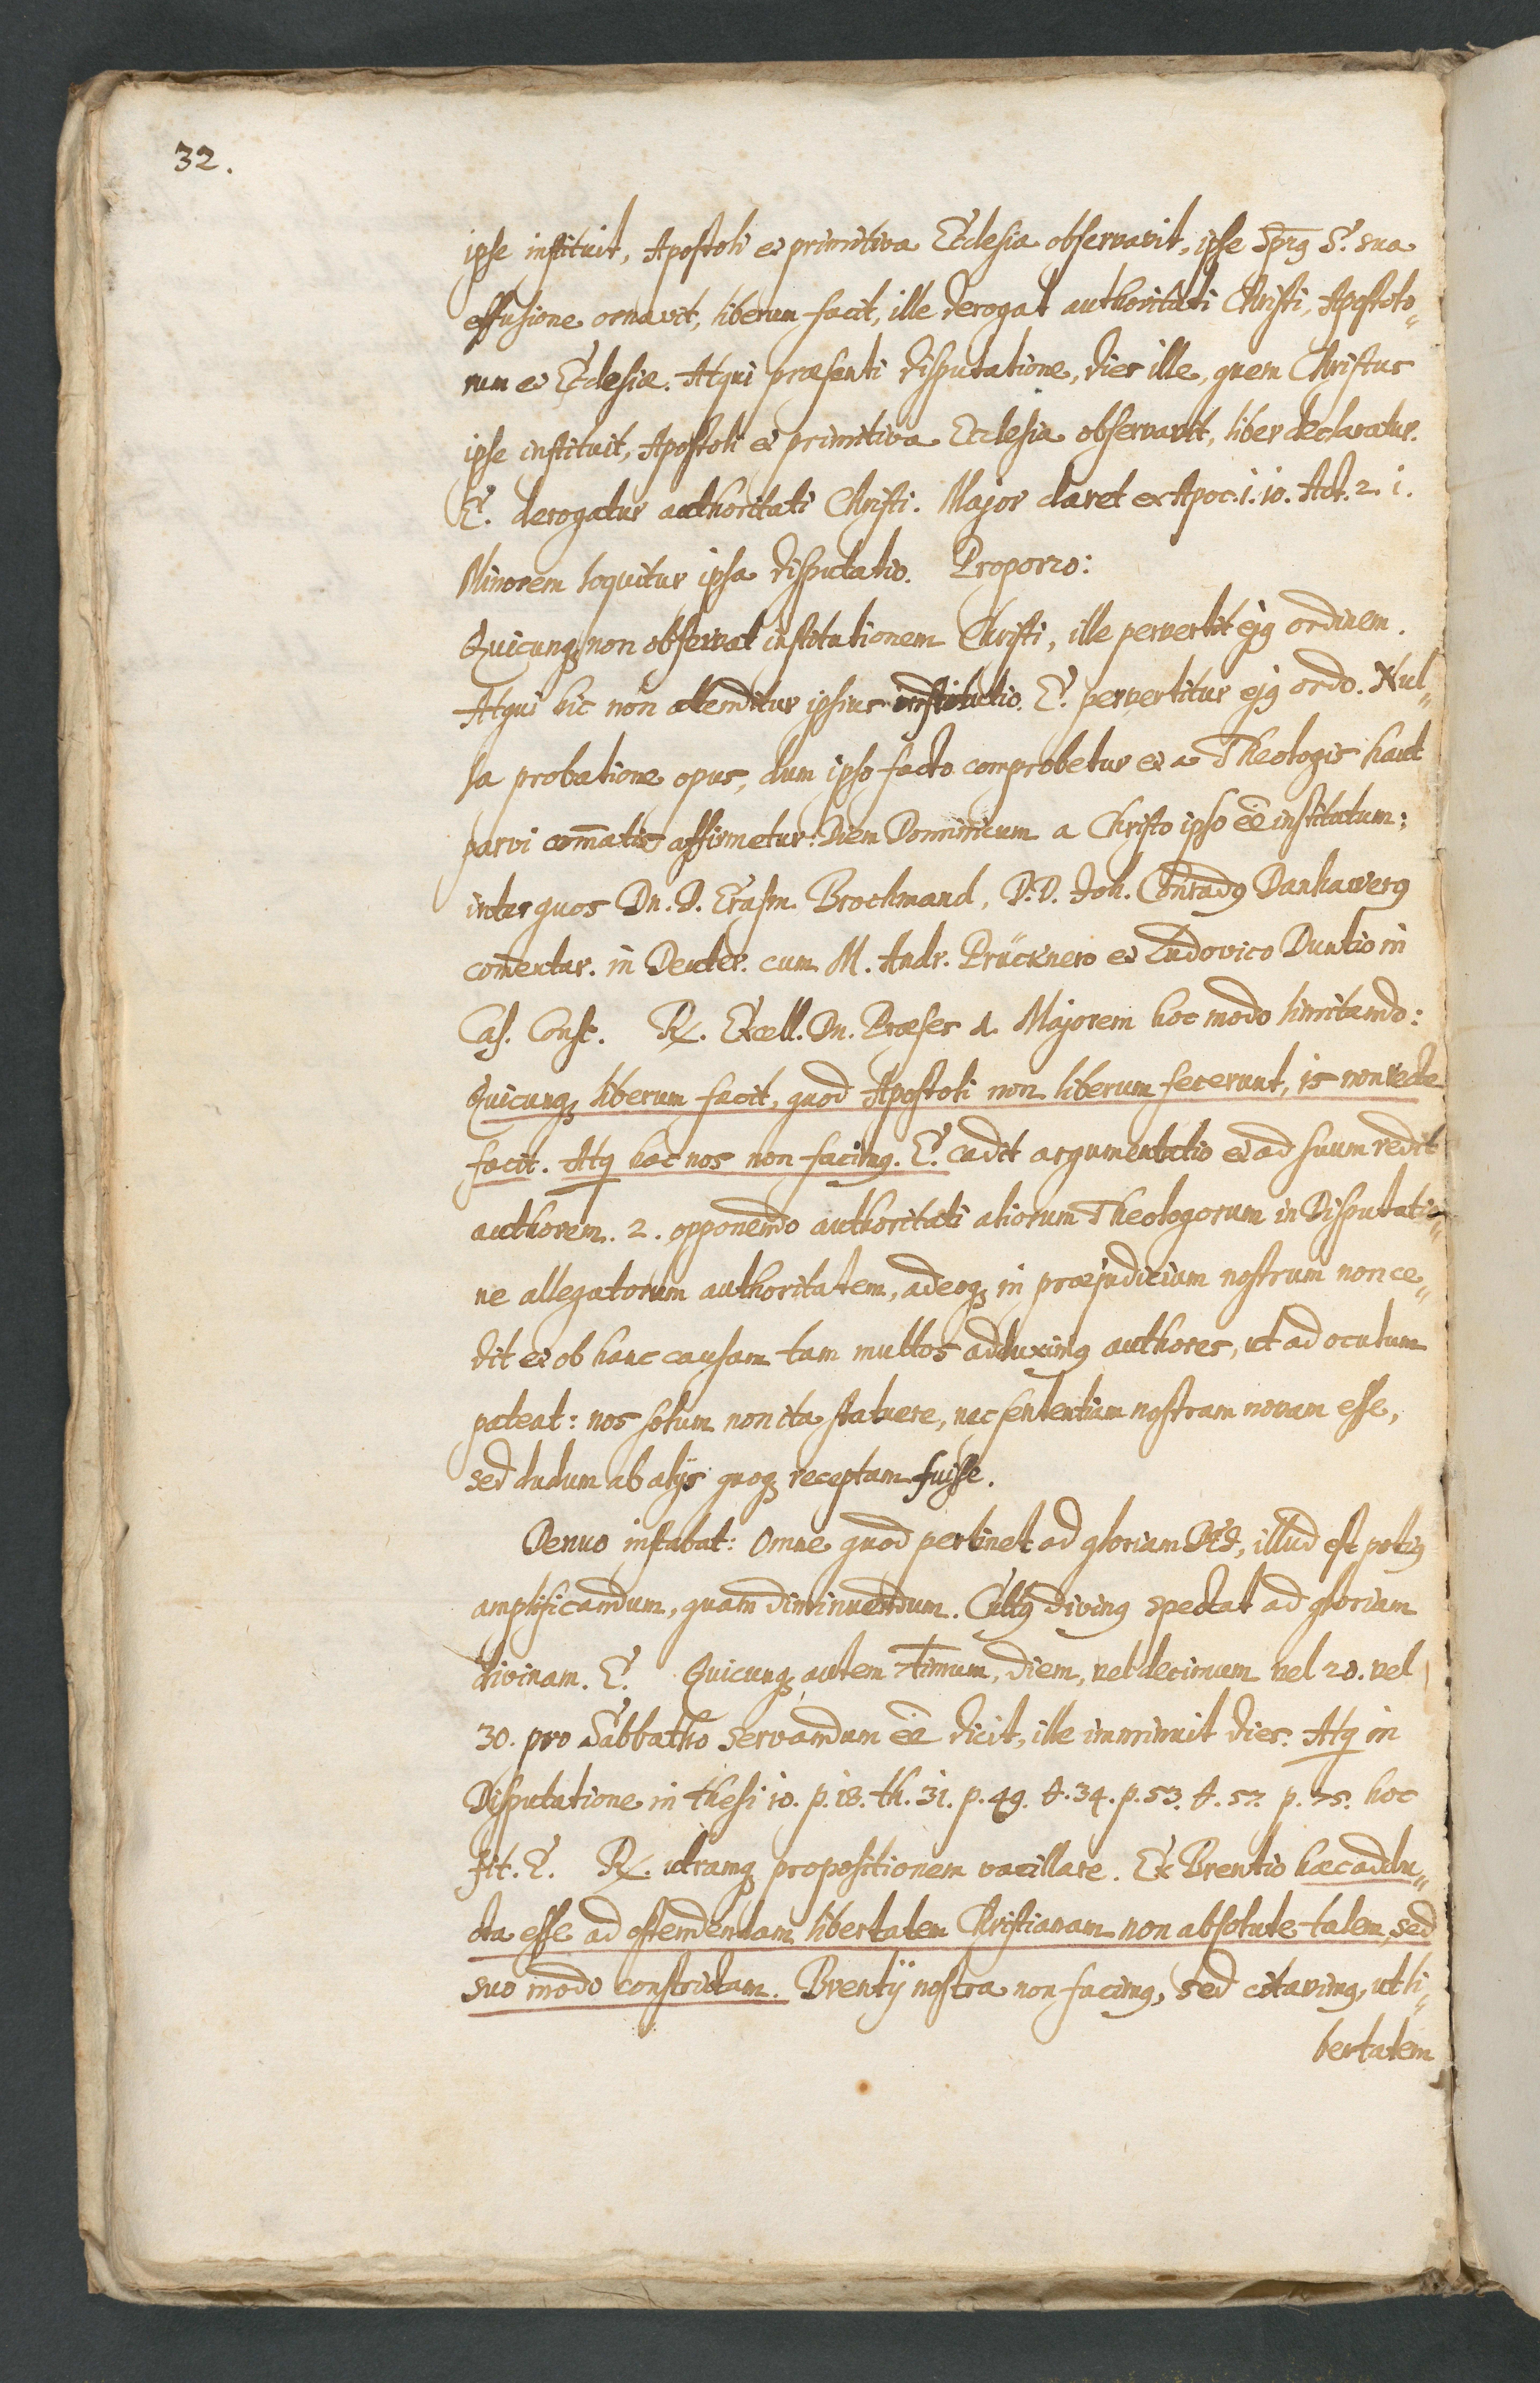 32.
ipse instituit, Apostoli et primitiva Ecclesia observavit, ipse Sp̄rꝰ S. sua
effusione ornavit, liberum facit, ille derogat authoritati Christi, Apostolo„
rum et Ecclesiæ. Atqui præsenti disputatione, dies ille, quem Christus
ipse instituit, Apostoli et primitiva Ecclesia observavit, liber declaratur.
E. derogatur authoritati Christi. Major claret ex Apoc. 1. 10. Act. 2. 1.
Minorem loquitur ipsa disputatio. Proporrò:
Quicunqꝫ non observat institutionem Christi, ille pervertit ejꝰ ordinem.
Atqui hic non attenditur ipsius institutio. E. pervertitur ejꝰ ordo. Nul„
la probatione opus, dum ipso facto comprobetur et a Theologis haut
parvi com̄atis affirmetur: Diem Dominicum a Christo ipso ēē institutum;
inter quos Dn. D. Erasm. Brochmand, D. D. Joh. Conradꝰ Danhawerꝰ
com̄entar. in Deuter. cum M. Andr. Prücknero et Ludovico Duntio in
Cas. Consc. ℞. Excell. Dn. Præses 1. Majorem hoc modo limitando:
Quicunqꝫ liberum facit, quod Apostoli non liberum fecerunt, is non recte
facit. Atq̨ hoc nos non facimꝰ. E. cadit argumentatio et ad suum redit
authorem. 2. opponendo authoritati aliorum Theologorum in Disputatio„
ne allegatorum authoritatem, adeoqꝫ in præjudicium nostrum non ce„
dit et ob hanc causam tam multos adduximꝰ authores, ut ad oculum
pateat: nos solum non ita statuere, nec sententiam nostram novam esse,
sed dudum ab alijs quoqꝫ receptam fuisse.
Denuo instabat: Omne quod pertinet ad gloriam DEI, illud est potiꝰ
amplificandum, quam diminuendum. Cultꝰ divinꝰ spectat ad gloriam
divinam. E. Quicunqꝫ autem 7timum, diem, vel decimum vel 20. vel
30. pro Sabbatho servandum ēē dicit, ille imminuit dies. Atq̨ in
Disputatione in thesi 10. p. 18. th. 31. p. 49. t. 34. p. 53. t. 57. p. 75. hoc
fit. E. ℞. utramqꝫ propositionem vacillare. Ex Brentio hæc addu„
cta esse ad ostendendam libertatem Christianam non absolute talem, sed
suo modo constrictam. Brentij nostra non facimꝰ, sed citavimꝰ, ut li„
bertatem